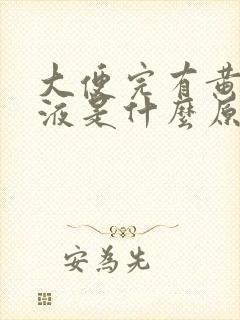 大便完有黄
液是什麼原
安為先